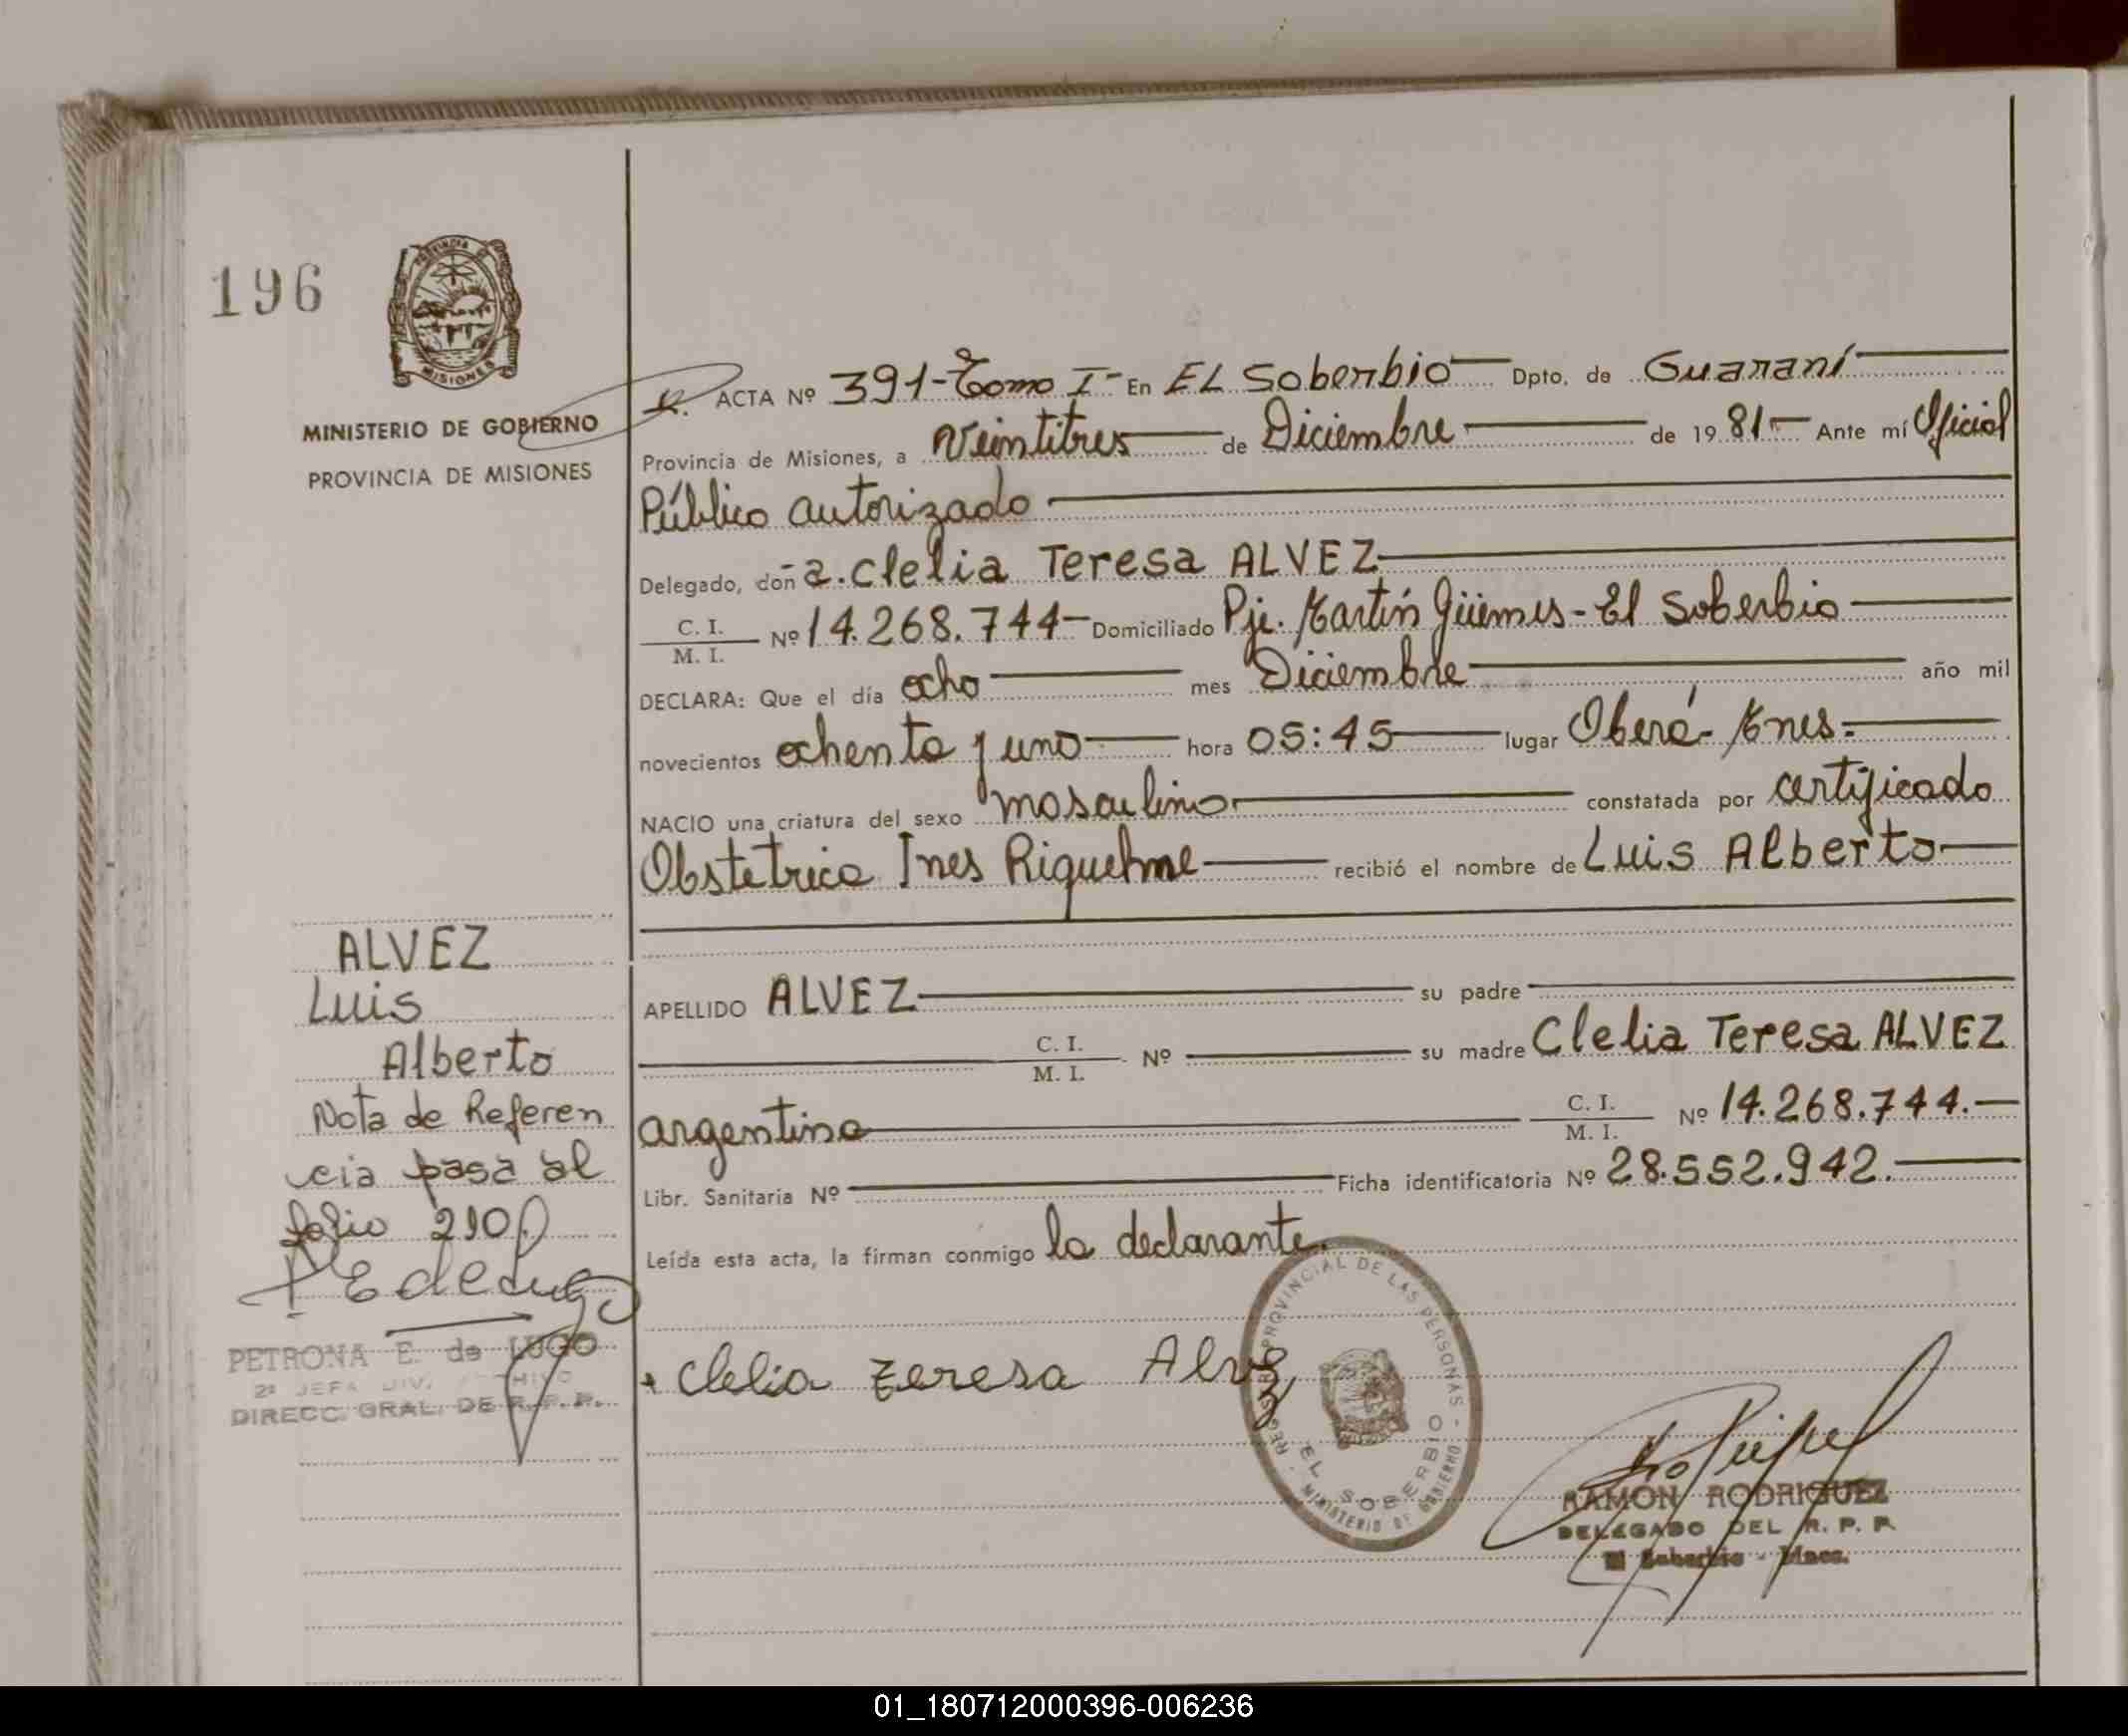 196
PROVINCIA DE
MISIONES
MINISTERIO DE GOBIERNO
PROVINCIA DE MISIONES
ACTA Nº 391-Tomo I- En EL Soberbio Dpto. de Guaraní
Provincia de Misiones, a Veintitres de Diciembre de 1981- Ante mí Oficial
Público autorizado
Delegado, doña. Clelia Teresa ALVEZ
C. I.
M. I. Nº 14.268.744- Domiciliado Pje. Martín Güemes - El Soberbio
DECLARA: Que el día ocho mes Diciembre año mil
novecientos ochenta y uno hora 05:45 lugar Oberá- Mnes.-
NACIO una criatura del sexo masculino constatada por certificado
Obstetrica Ines Riquelme recibió el nombre de Luis Alberto
APELLIDO ALVEZ su padre
C. I.
M. I. Nº su madre Clelia Teresa ALVEZ
argentina C. I.
M. I. Nº 14.268.744.-
Libr. Sanitaria Nº Ficha identificatoria Nº 28.552.942.
Leída esta acta, la firman conmigo la declarante.
Clelia Teresa Alvez
REGISTRO PROVINCIAL DE LAS PERSONAS - MINISTERIO DE GOBIERNO
EL SOBERBIO
RAMON RODRIGUEZ
DELEGADO DEL R. P. P.
El Soberbio - Mnes.
ALVEZ
Luis
Alberto
Nota de Referen
cia pasa al
folio 210
PETRONA E. de LUGO
2ª JEFA DIV. ARCHIVO
DIRECC. GRAL. DE R. P. P.
01_180712000396-006236